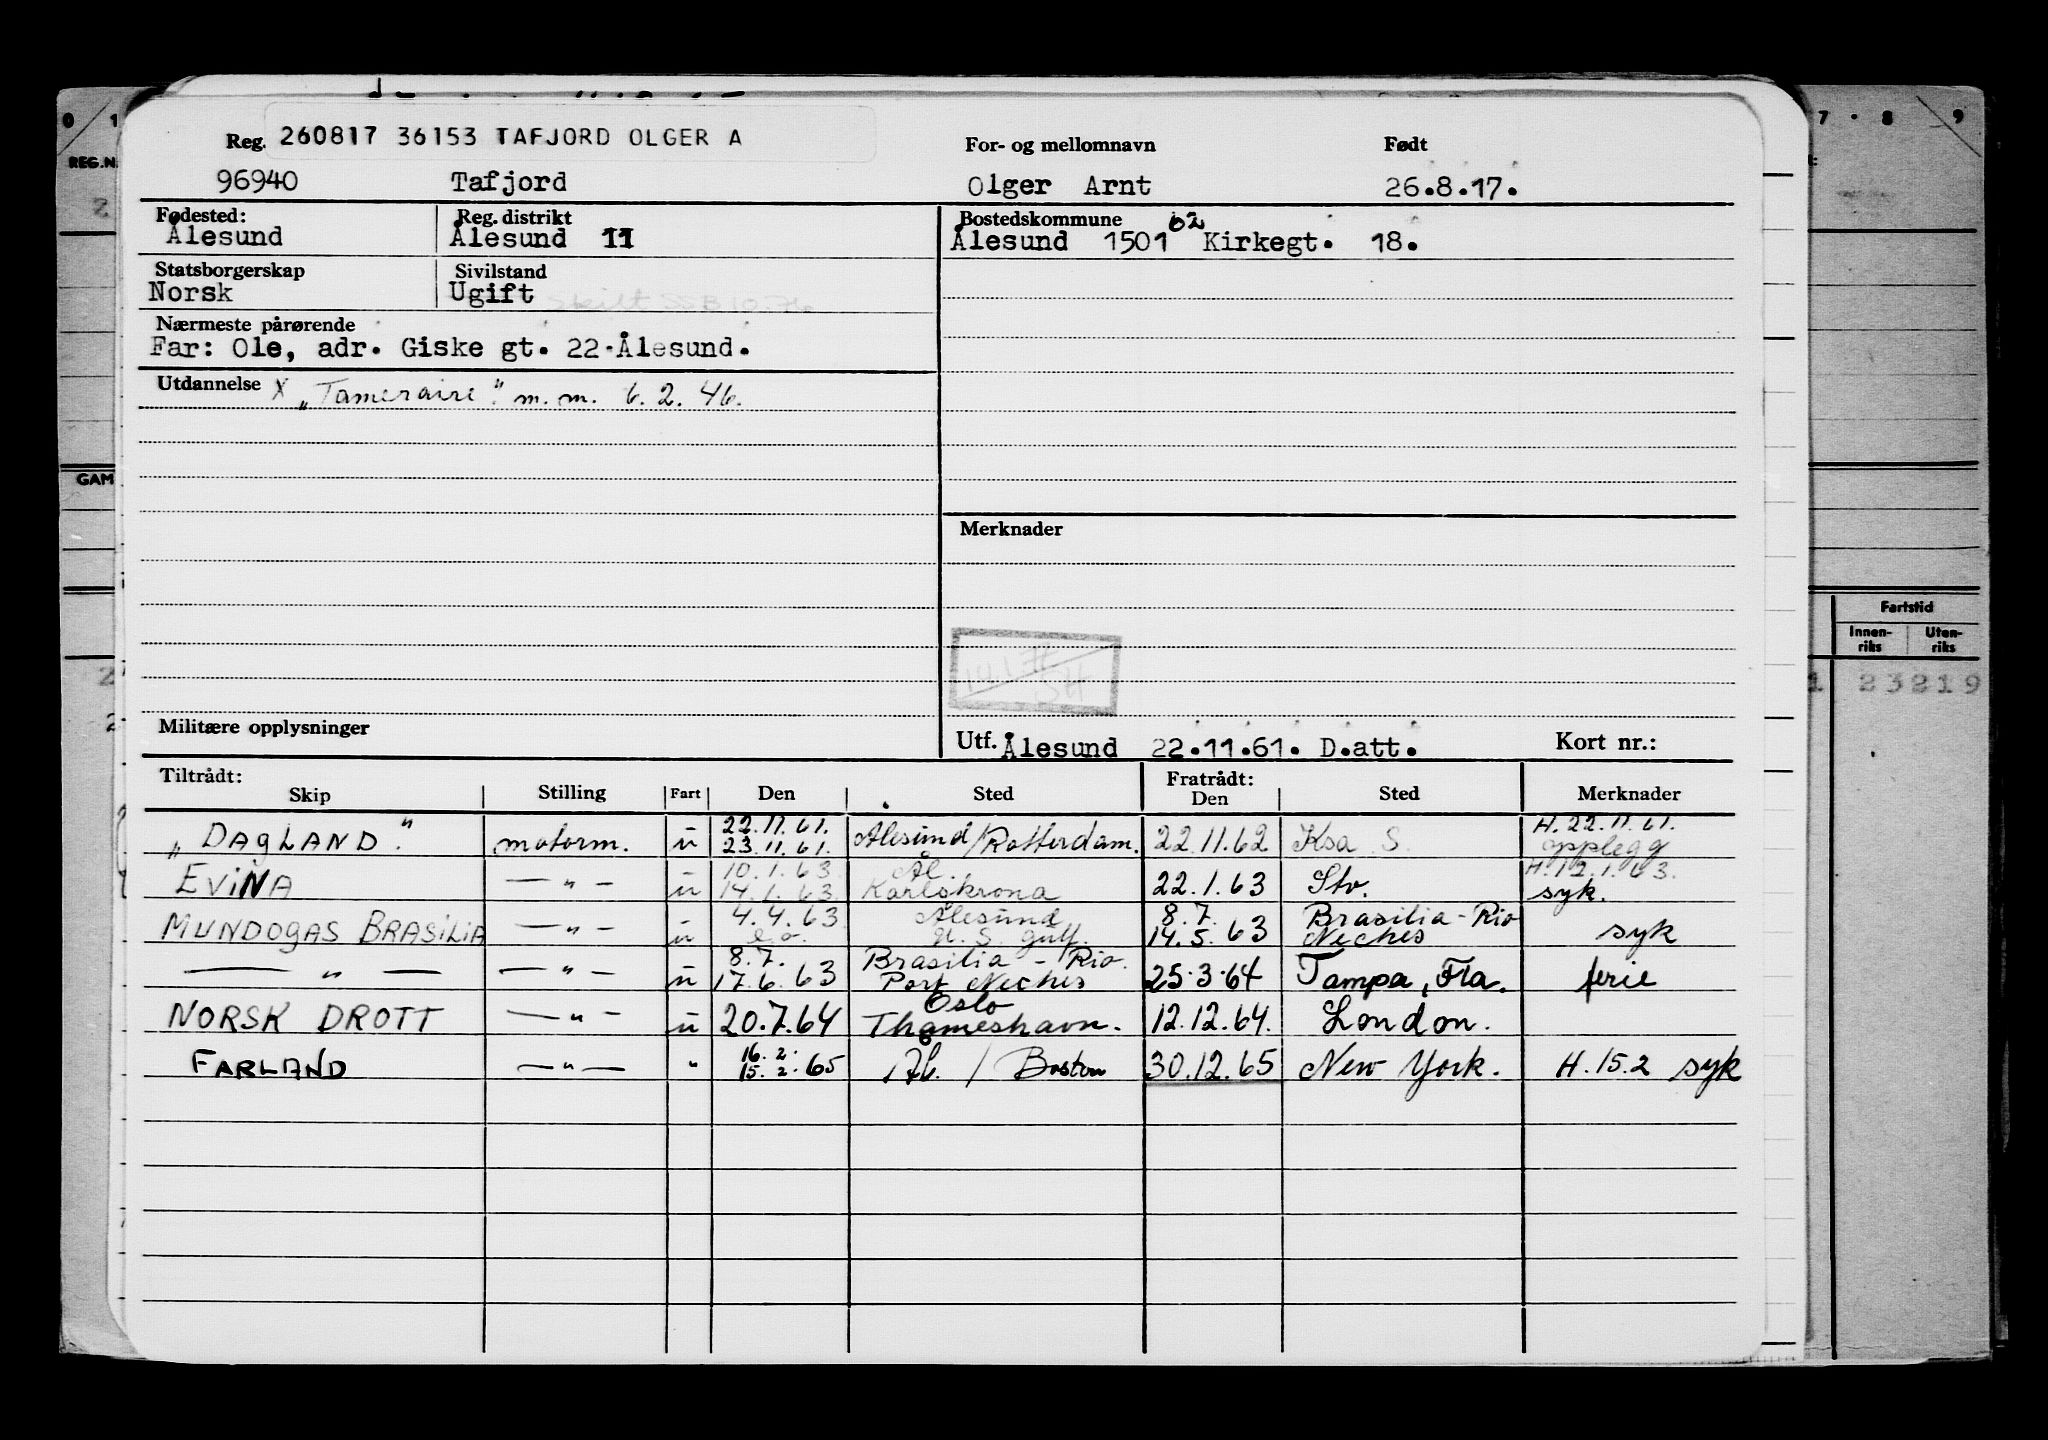 Reg. 260817 36153 TAFJORD OLGER A
For- og mellomnavn
Født
96940 Tafjord
Olger Arnt 26.8.17.
Fødested: Reg. distrikt Bostedskommune
Ålesund Ålesund 11 Ålesund 1501 62 Kirkegt. 18.
Statsborgerskap Sivilstand
Norsk Ugift
Nærmeste pårørende
Far: Ole, adr. Giske gt. 22 Ålesund.
Utdannelse X „Tameraire." m.m. 6.2.46.
Merknader
Militære opplysninger
Utf. Ålesund 22.11.61. D.att. Kort nr.:
Tiltrådt: Fratrådt:
Skip Stilling Fart Den Sted Den Sted Merknader
22.11.61. H. 22.11.61.
„DAGLAND." motorm. u 23.11.61. Ålesund/Rotterdam. 22.11.62 Ksa S. opplegg
10.1.63. Ål. H.12.1.63.
EVINA —"— u 14.1.63. Karlskrona 22.1.63 Stv. syk.
4.4.63 Ålesund 8.7. Brasilia - Rio
MUNDOGAS BRASILIA —"— u U.S. gulf. 14.5.63 Neches syk
8.7. Brasilia - Rio.
—"— —"— u 17.6.63 Port Neches 25.3.64 Tampa, Fla. ferie
Oslo
NORSK DROTT —"— u 20.7.64 Thameshavn. 12.12.64. London.
16.2.
FARLAND —"— " 15.2.65 Ål. / Boston 30.12.65 New York. H.15.2 syk
REG.N
GAM
7 · 8 9
Fartstid
Innen-
riks
Uten-
riks
1 23219